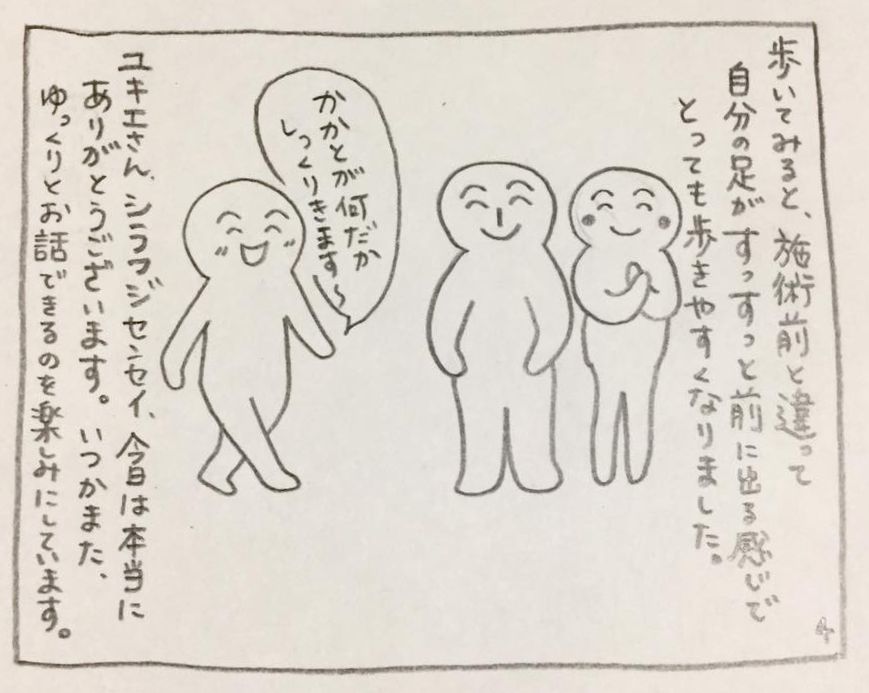 歩いてみると、施術前と違って
自分の足がすっすっと前に出る感じで
とっても歩きやすくなりました。
かかとが何だか
しっくりきます〜
ユキエさん、シラフジセンセイ、今日は本当に
ありがとうございます。いつかまた、
ゆっくりとお話できるのを楽しみにしています。